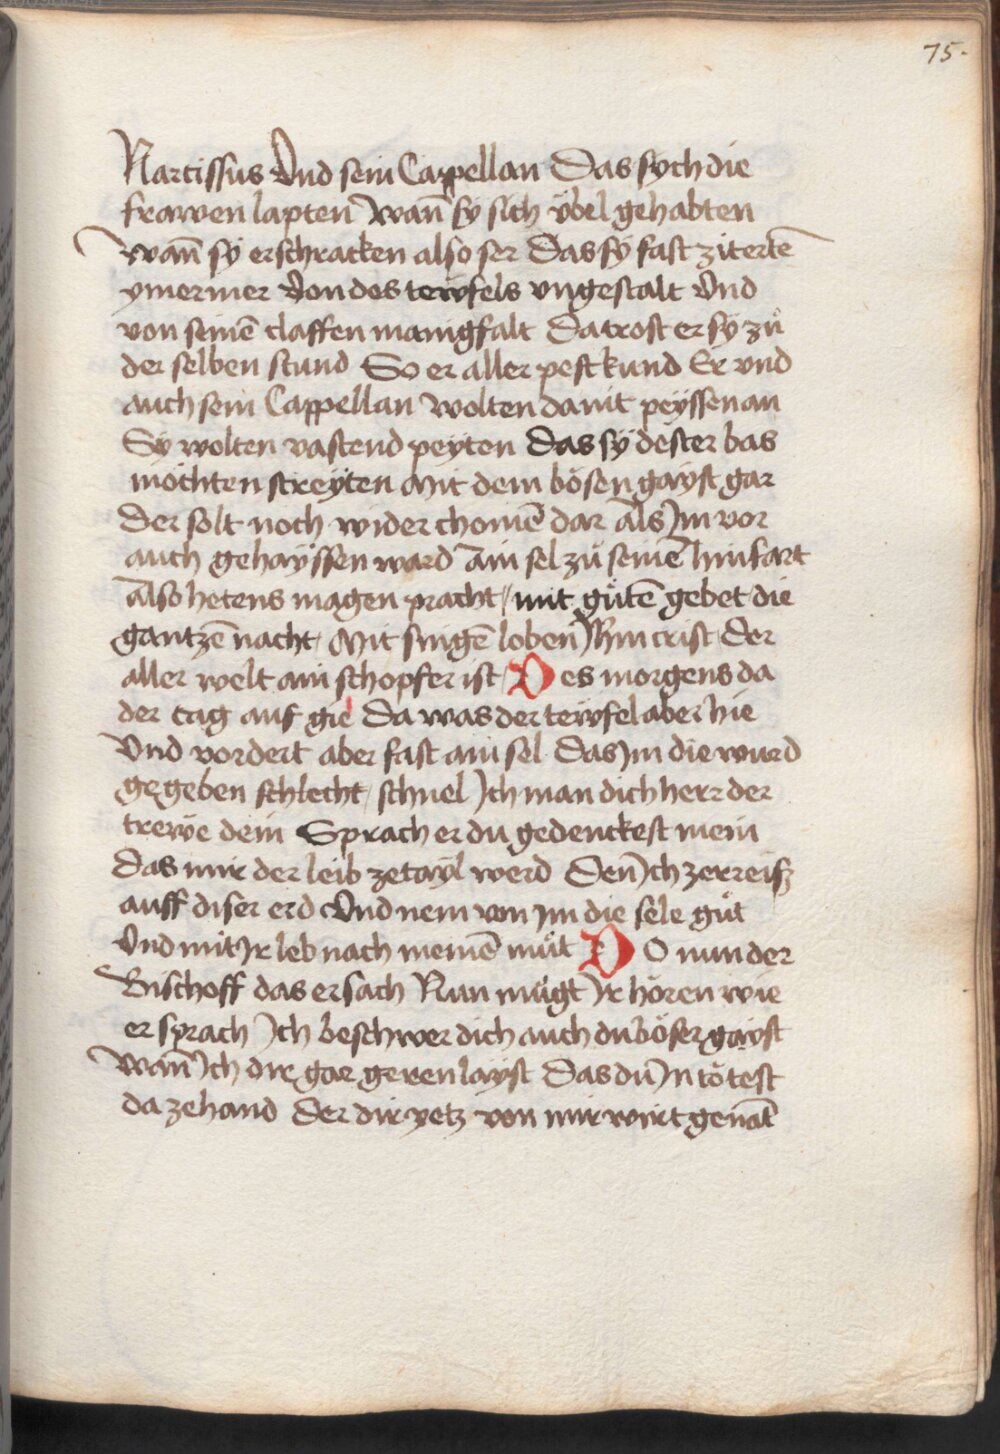 75.
Narcissus Vnd sein Cappellan Das sych die
frawen lapten Wan̄ sy sich v̈bel gehabten
Wan̄ sÿ erschracken also ser Das sÿ fast zitertē
ymermer Von des tewfels vngestalt Vnd
von seinē claffen manigfalt Da trost er sÿ zů
der selben stund So er aller pest kund Er vnd
auch sein Cappellan Wolten damit peyssen an
Sÿ wolten vastend peyten Das sÿ dester bas
möchten streÿten Mit dem bösen gaÿst gar
Der solt noch wider chomē dar Als Jm vor
auch gehaÿssen ward Ain sel zů seinē hinfart
Also hetens magen pracht / mit gůtē gebet die
gantzē nacht Mit singē loben Jhm crist Der
aller welt ain schopfer ist Des morgens da
der tag auf gie Da was der tewfel aber hie
Vnd vordert aber fast ain sel Das Jm die wurd
gegeben schlecht / schnel Jch man dich herr der
trewe dein Sprach er du gedenckest mein
Das mir der leib zetaÿl werd Den Jch zerreisz
auff diser erd Vnd nem von jm die sele gůt
Vnd mit Jr leb nach meinē můt DO nun der
Bischoff das ersach Nun můgt Jr hören wie
er sprach Jch beschwer dich auch du böser gaÿst
Wan̄ Jch dir gar geren laÿst Das du Jn tötest
da zehand Der dir yetz von mir wirt genāt